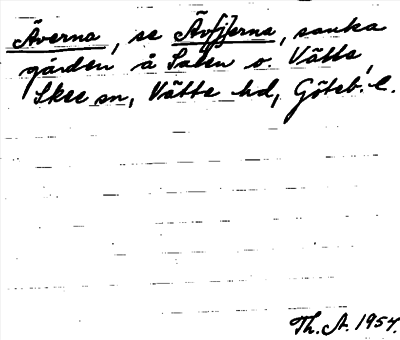 Äverna, se Ävfjerna, sanka
gården å Saten o. Vätte,
Skee sn, Vätte hd, Göteb. l.
Th. A. 1954.